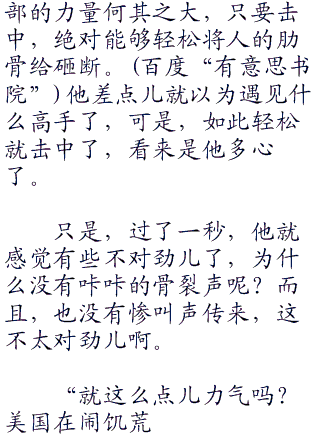 部的力量何其之大，只要击
中，绝对能够轻松将人的肋
骨给砸断。(百度“有意思书
院”)他差点儿就以为遇见什
么高手了，可是，如此轻松
就击中了，看来是他多心
了。
只是，过了一秒，他就
感觉有些不对劲儿了，为什
么没有咔咔的骨裂声呢？而
且，也没有惨叫声传来，这
不太对劲儿啊。
“就这么点儿力气吗？
美国在闹饥荒